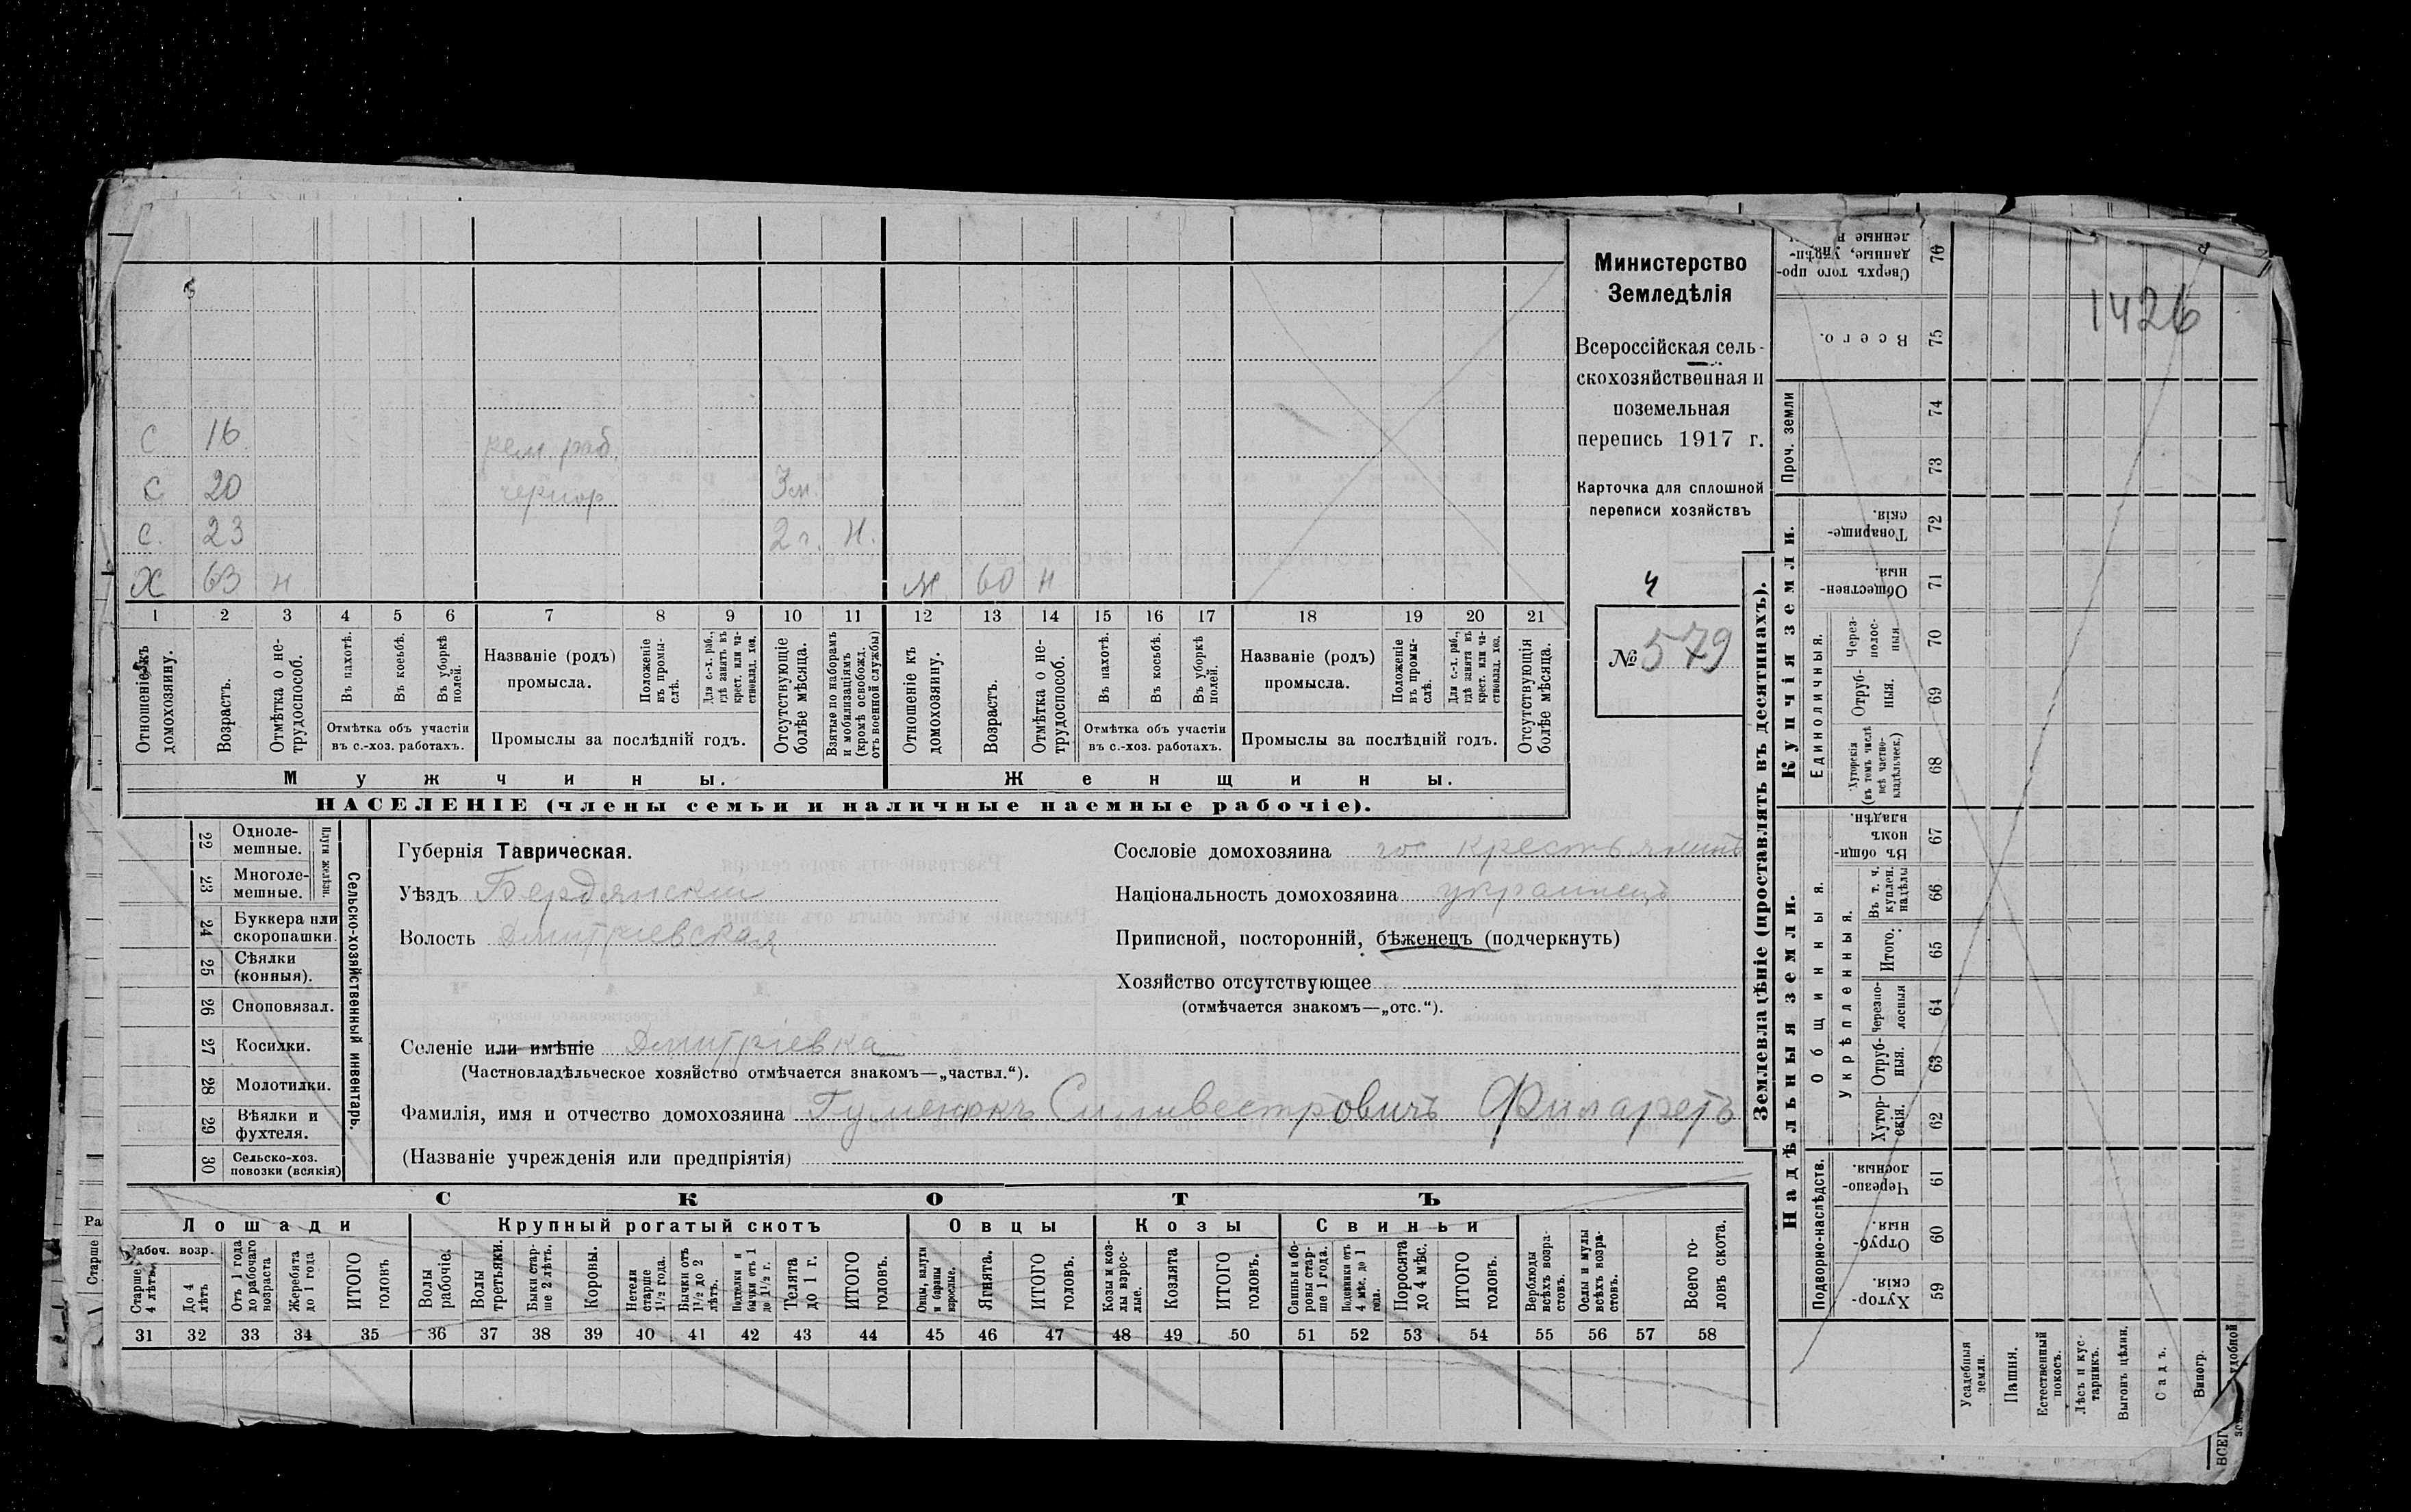 1426
Министерство
Земледѣлія
Всероссійская сель-
скохозяйственная и
поземельная
перепись 1917 г.
Карточка для сплошной
переписи хозяйствъ
4
№ 579
С 16 рем. раб.
С 20 чернор 3 м.
С. 23 2 г. Н.
Х 63 н ж 60 н
1 2 3 4 5 6 7 8 9 10 11 12 13 14 15 16 17 18 19 20 21
Отношеніе къ домохозяину.
Возрастъ.
Отмѣтка о не-трудоспособ.
Въ пахотѣ.
Въ косьбѣ.
Въ уборкѣ полей.
Отмѣтка объ участіи
въ с.-хоз. работахъ.
Названіе (родъ)
промысла.
Положеніе въ промы-слѣ.
Для с.-х. раб., гдѣ занятъ въ крест. или ча-стновлад. хоз.
Промыслы за послѣдній годъ.
Отсутствующіе болѣе мѣсяца.
Взятые по наборамъ и мобилизаціямъ (кромѣ освобожд. отъ военной службы)
Отношеніе къ домохозяину.
Возрастъ.
Отмѣтка о не-трудоспособ.
Въ пахотѣ.
Въ косьбѣ.
Въ уборкѣ полей.
Отмѣтка объ участіи
въ с.-хоз. работахъ.
Названіе (родъ)
промысла.
Положеніе въ промы-слѣ.
Для с.-х. раб., гдѣ занята въ крест. или ча-стновлад. хоз.
Промыслы за послѣдній годъ.
Отсутствующія болѣе мѣсяца.
Мужчины.
Женщины.
НАСЕЛЕНІЕ (члены семьи и наличные наемные рабочіе).
22 Одноле-мешные.
23 Многоле-мешные.
Плуги желѣзн.
24 Буккера или скоропашки.
25 Сѣялки (конныя).
26 Сноповязал.
27 Косилки.
28 Молотилки.
29 Вѣялки и фухтеля.
30 Сельско-хоз. повозки (всякія)
Сельско-хозяйственный инвентарь.
Губернія Таврическая.
Уѣздъ Бердянскій
Волость Дмитріевская
Сословіе домохозяина гос крестьянинъ
Національность домохозяина украинецъ
Приписной, посторонній, бѣженецъ (подчеркнуть)
Хозяйство отсутствующее
(отмѣчается знакомъ—„отс.“).
Селеніе или имѣніе Дмитріевка
(Частновладѣльческое хозяйство отмѣчается знакомъ—„частвл.“).
Фамилія, имя и отчество домохозяина Гуменюкъ Сильвестровичъ Филаретъ
(Названіе учрежденія или предпріятія)
СКОТЪ
Лошади
Рабоч. возр.
Старше 4 лѣтъ
До 4 лѣтъ
Отъ 1 года до рабочаго возраста
Жеребята до 1 года
ИТОГО головъ
Крупный рогатый скотъ
Волы рабочіе.
Волы третьяки.
Быки стар-ше 2 лѣтъ.
Коровы.
Нетели старше 1½ года.
Бычки отъ 1½ до 2 лѣтъ.
Подтелки и бычки отъ 1 до 1½ г.
Телята до 1 г.
ИТОГО головъ.
Овцы
Овцы, валухи и бараны взрослые.
Ягнята.
ИТОГО головъ.
Козы
Козы и коз-лы взрос-лые.
Козлята
ИТОГО головъ.
Свиньи
Свиньи и бо-ровы стар-ше 1 года.
Подсвинки отъ 4 мѣс. до 1 года.
Поросята до 4 мѣс.
ИТОГО головъ.
Верблюды всѣхъ возра-стовъ.
Ослы и мулы всѣхъ возра-стовъ.
Всего го-ловъ скота.
31 32 33 34 35 36 37 38 39 40 41 42 43 44 45 46 47 48 49 50 51 52 53 54 55 56 57 58
Землевладѣніе (проставлять въ десятинахъ).
Надѣльныя земли.
Подворно-наслѣдств.
Хутор-скія. 59
Отруб-ныя. 60
Черезпо-лосныя. 61
Общинныя.
Укрѣпленныя.
Хутор-скія. 62
Отруб-ныя. 63
Черезпо-лосныя 64
Итого. 65
Въ т. ч. куплен. надѣлы 66
Въ общи-номъ владѣн. 67
Купчія земли.
Единоличныя.
Хуторскія (въ томъ числѣ всѣ частно-владѣльческ.) 68
Отруб-ныя. 69
Через-полос-ныя 70
Обществен-ныя. 71
Товарище-скія. 72
Проч. земли
73
74
Всего. 75
Сверхъ того про-данные, укрѣп-ленные 76
Усадебныя земли.
Пашня.
Естественный покосъ.
Лѣсъ и кус-тарникъ.
Выгонъ цѣлин.
Садъ.
Виногр.
удобной
ВСЕГ
Ра
Старше